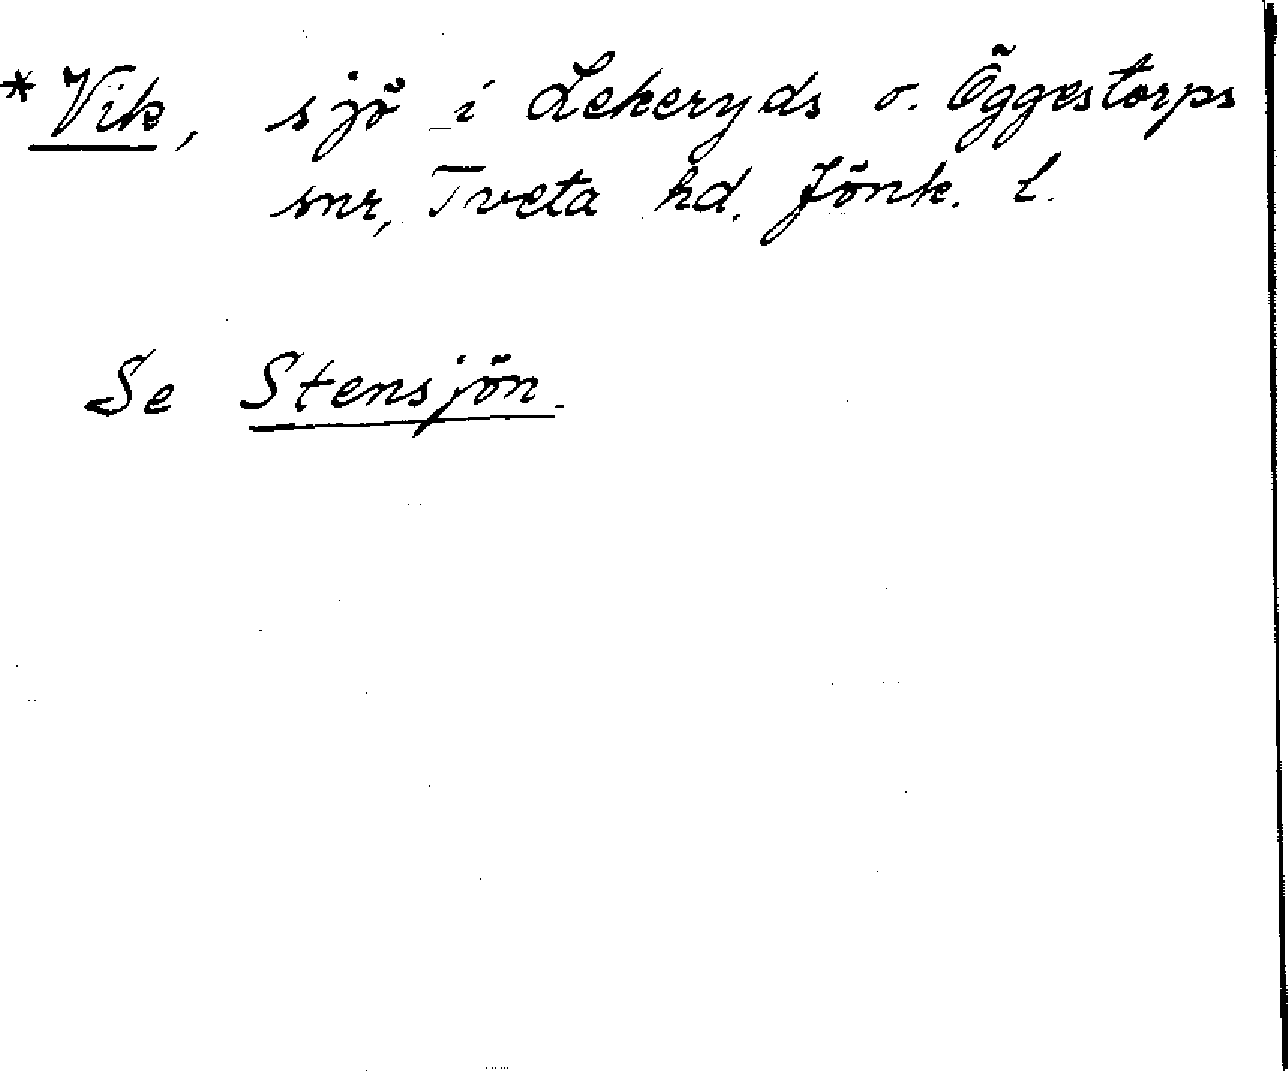 *Vik, sjö i Lekeryds o. Öggestorps
snr, Tveta hd. Jönk. l.
Se Stensjön.